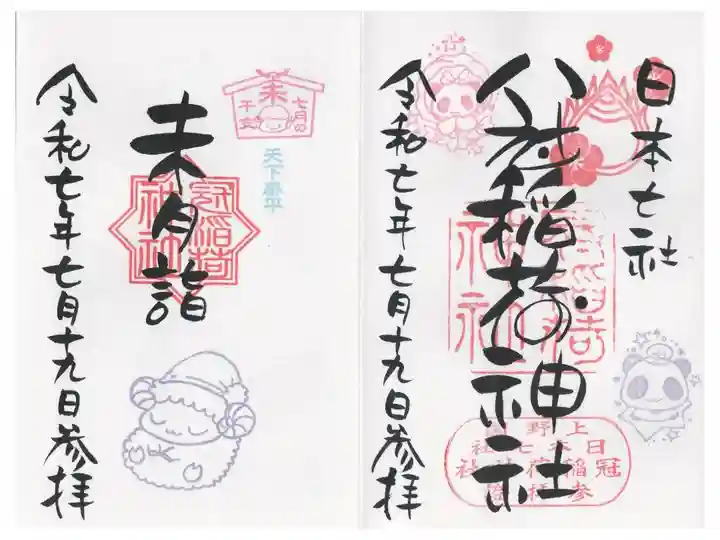 日本七社
冠稲荷神社
冠稲荷
神社
上野國
日本七社
冠稲荷神社
参拝證
令和七年七月十九日参拝
七月の
未
干支
天下泰平
未月詣
冠稲荷
神社
令和七年七月十九日参拝